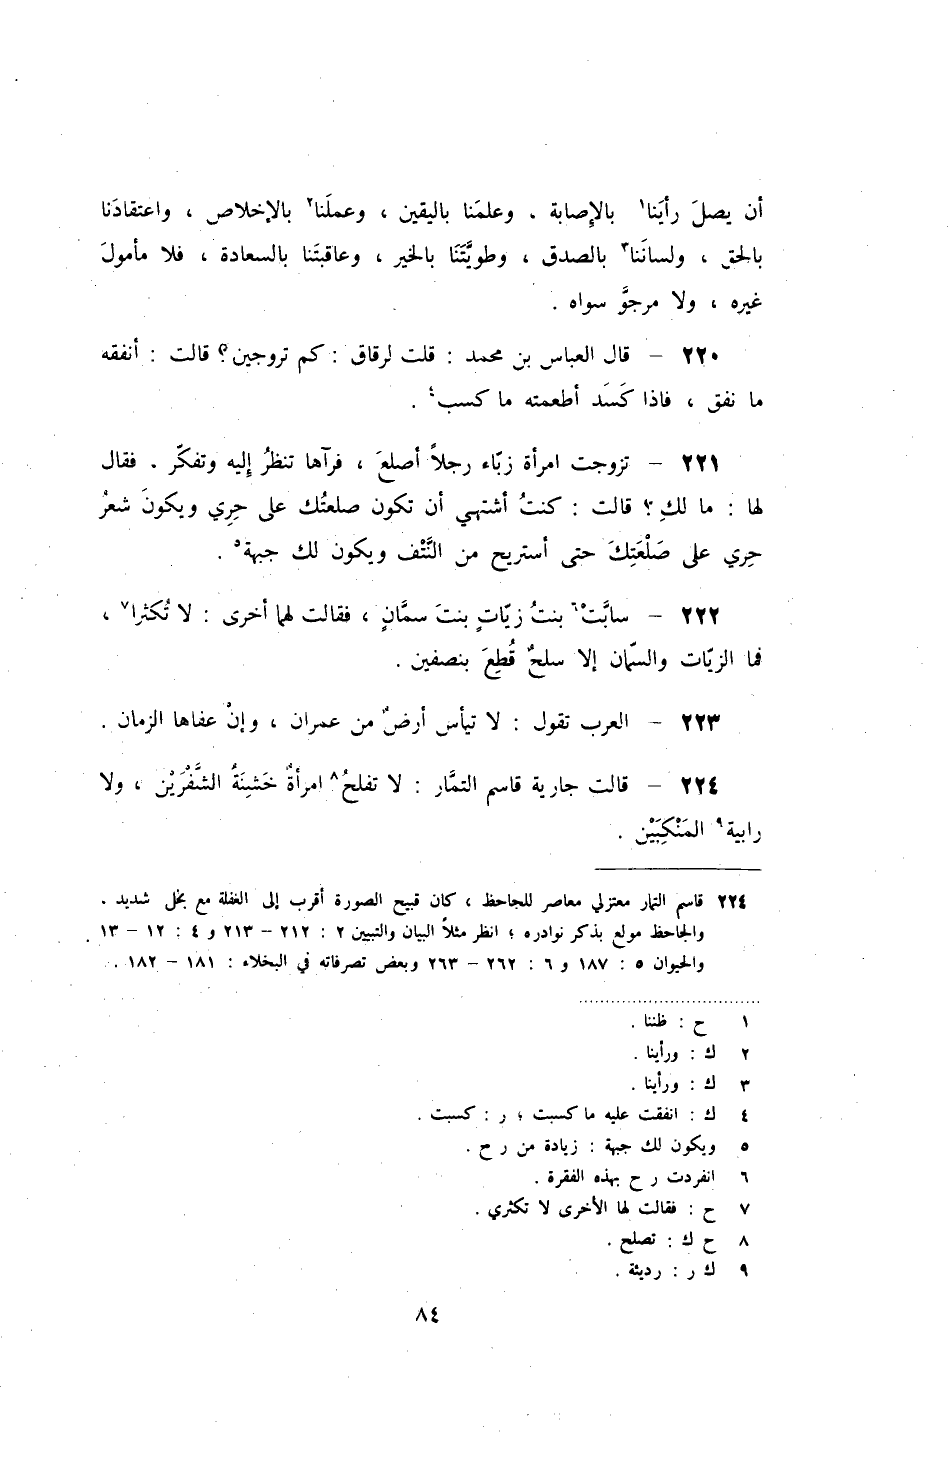 أن يصلَ رأيَنا١ بالإصابة ، وعلمَنا باليقين ، وعملَنا٢ بالإخلاص ، واعتقادَنا
بالحق ، ولسانَنا٣ بالصدق ، وطويَّتَنَا بالخير ، وعاقبتَنا بالسعادة ، فلا مأمولَ
غيره ، ولا مرجوَّ سواه .
٢٢٠ – قال العباس بن محمد : قلت لرقاق : كم تروجين؟ قالت : أنفقه
ما نفق ، فاذا كَسَد أطعمته ما كسب٤ .
٢٢١ – تزوجت امرأة زبّاء رجلاً أصلعَ ، فرآها تنظرُ إليه وتفكّر . فقال
لها : ما لكِ؟ قالت : كنتُ أشتهي أن تكون صلعتُك على حِرِي ويكونَ شعرُ
حِرِي على صَلْعَتِكَ حتى أستريح من النَّتْف ويكون لك جبهة٥ .
٢٢٢ – سابَّتْ٦ بنتُ زيّاتٍ بنتَ سمَّانٍ ، فقالت لهما أخرى : لا تُكثرا٧ ،
فما الزيّات والسمّان إلا سلحٌ قُطِعَ بنصفين .
٢٢٣ – العرب تقول : لا تيأس أرضٌ من عمران ، وإنْ عفاها الزمان .
٢٢٤ – قالت جارية قاسم التمَّار : لا تفلحُ٨ امرأةٌ خَشِنَةُ الشَّفْرَيْن ، ولا
رابية٩ المَنْكِبَيْن .
٢٢٤ قاسم التمار معتزلي معاصر للجاحظ ، كان قبيح الصورة أقرب إلى الغفلة مع بخل شديد .
والجاحظ مولع بذكر نوادره ؛ انظر مثلاً البيان والتبيين ٢ : ٢١٢ – ٢١٣ و ٤ : ١٢ – ١٣
والحيوان ٥ : ١٨٧ و ٦ : ٢٦٢ – ٢٦٣ وبعض تصرفاته في البخلاء : ١٨١ – ١٨٢ .
١ ح : ظننا .
٢ ك : ورأينا .
٣ ك : ورأينا .
٤ ك : انفقت عليه ما كسبت ؛ ر : كسبت .
٥ ويكون لك جبهة : زيادة من ر ح .
٦ انفردت ر ح بهذه الفقرة .
٧ ح : فقالت لها الأخرى لا تكثري .
٨ ح ك : تصلح .
٩ ك ر : رديئة .
٨٤